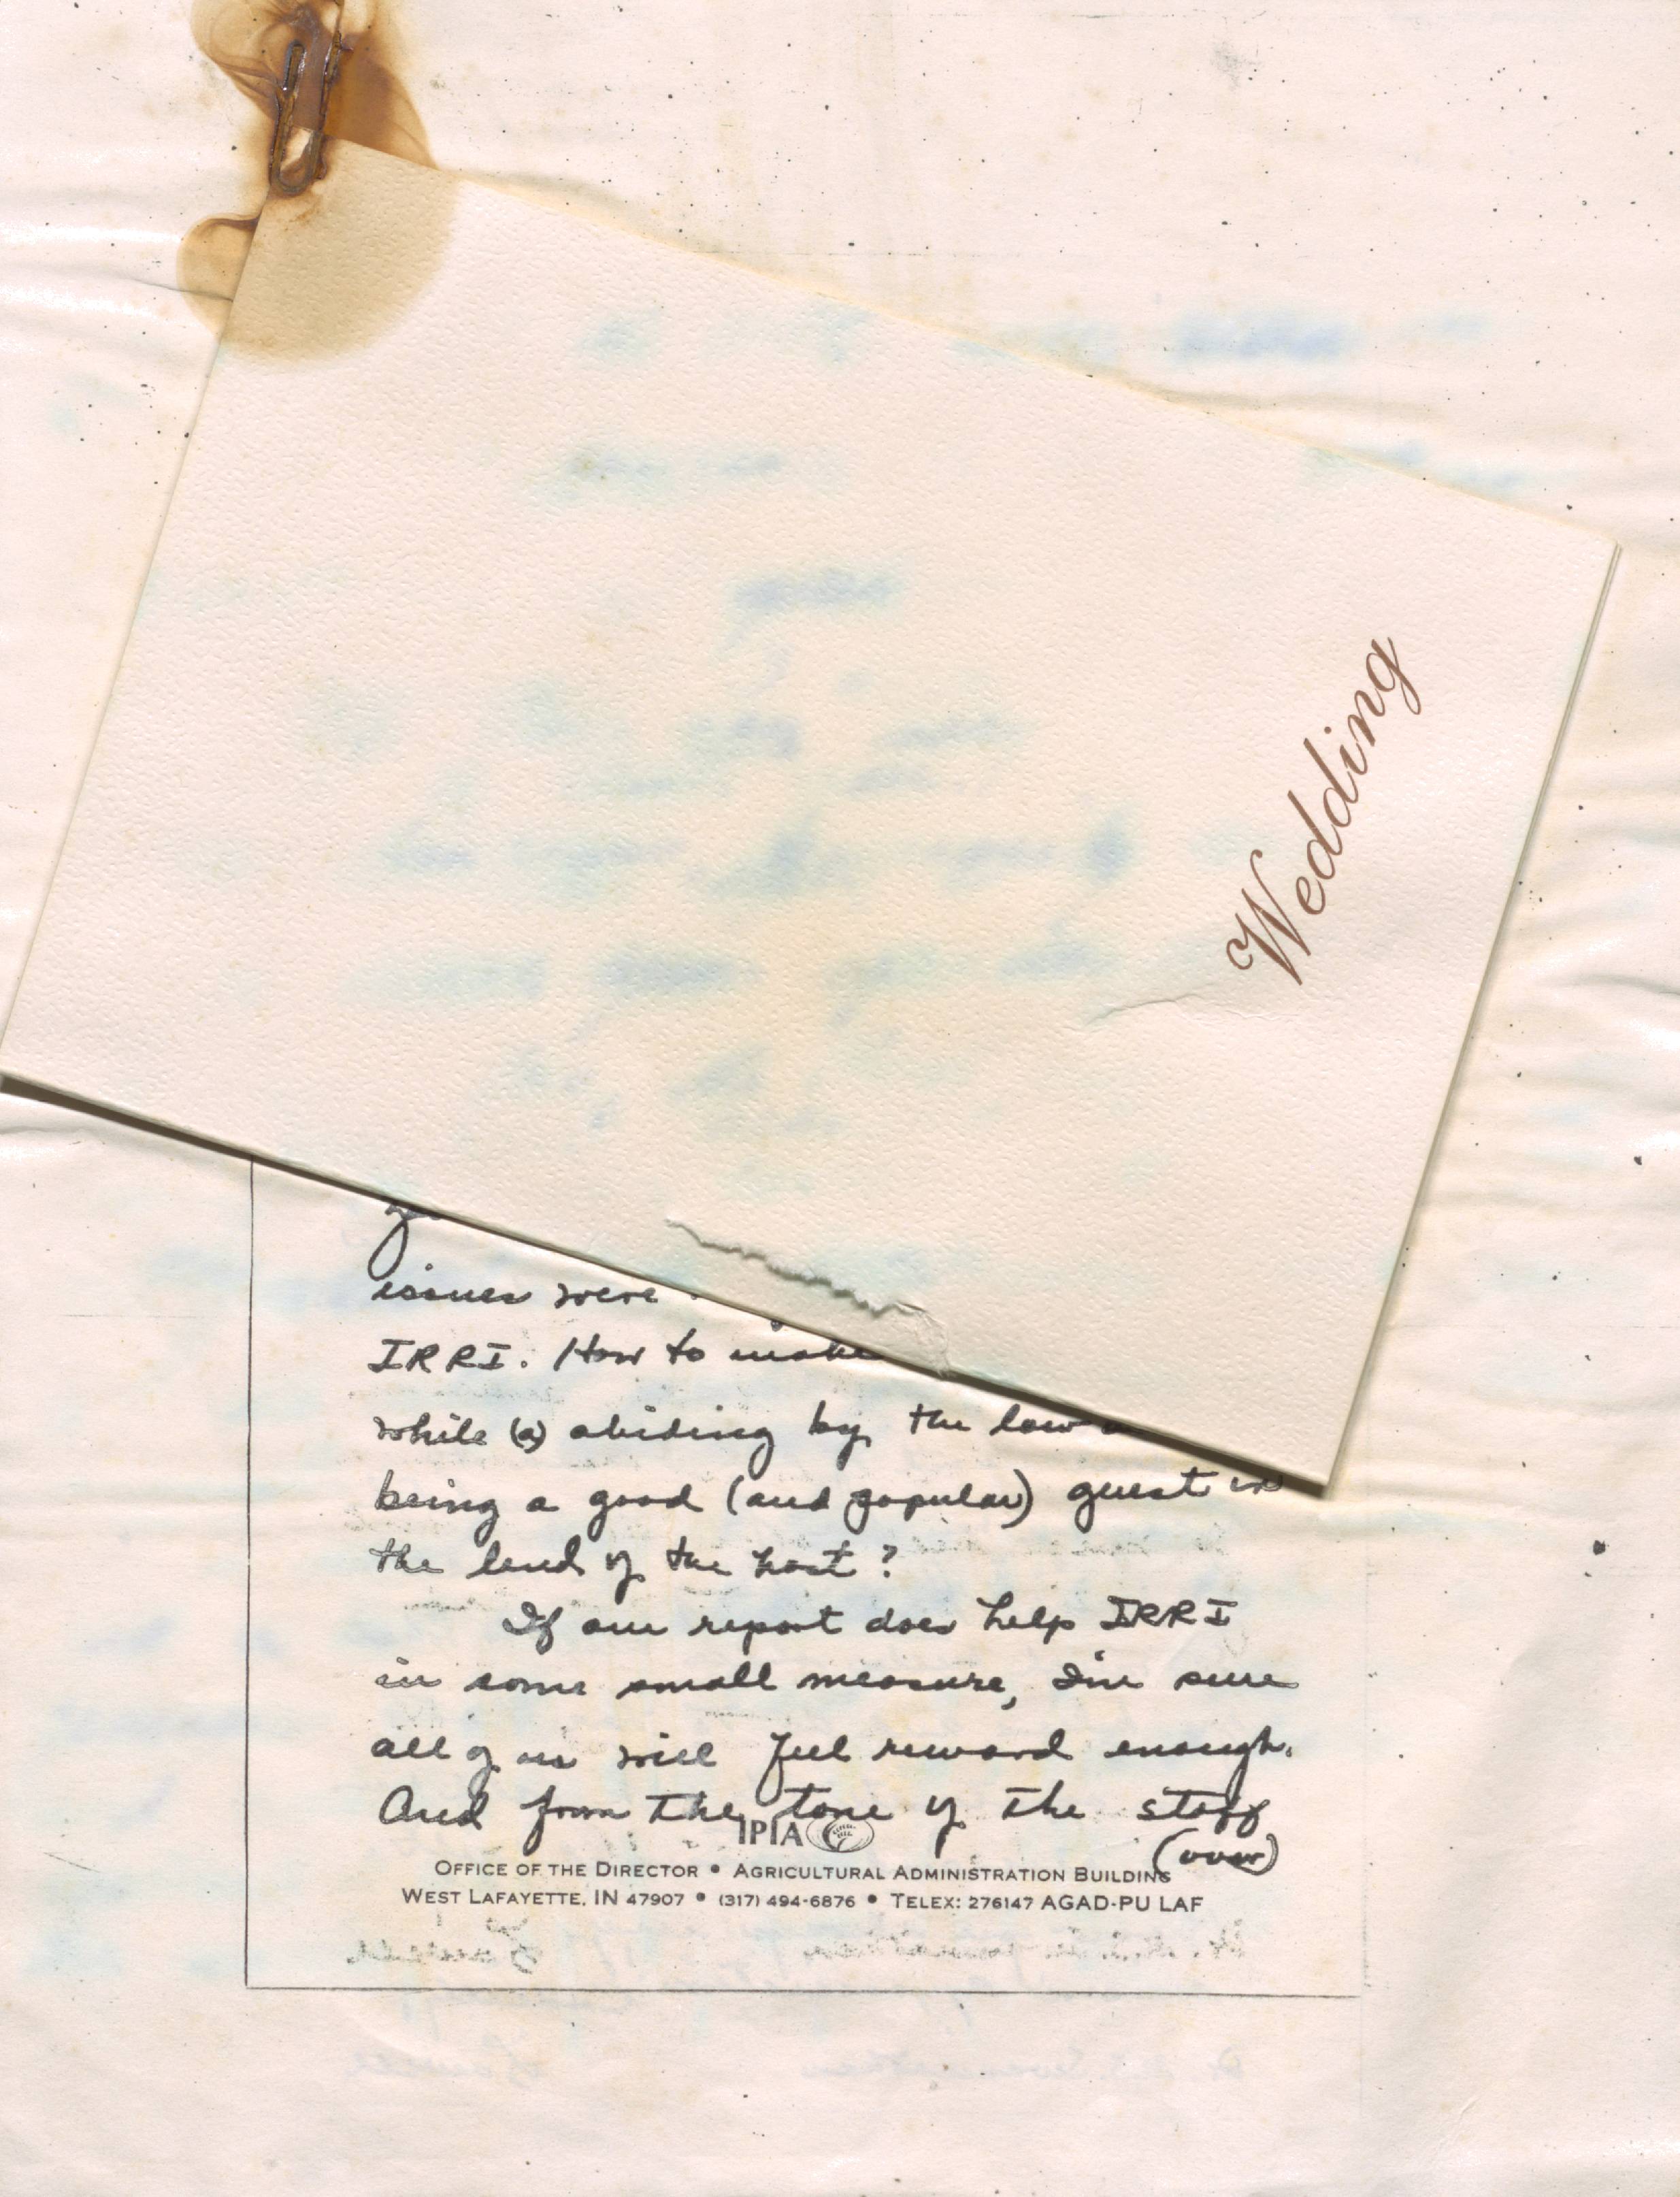 Wedding
issues were
IRRI. How to make
while (a) abiding by the law
being a good (and popular) guest in
the land of the host?
If our report does help IRRI
in some small measure, I'm sure
all of us will feel reward enough.
And from the tone of the staff
(over)
IPIA
OFFICE OF THE DIRECTOR • AGRICULTURAL ADMINISTRATION BUILDING
WEST LAFAYETTE, IN 47907 • (317) 494-6876 • TELEX: 276147 AGAD-PU LAF